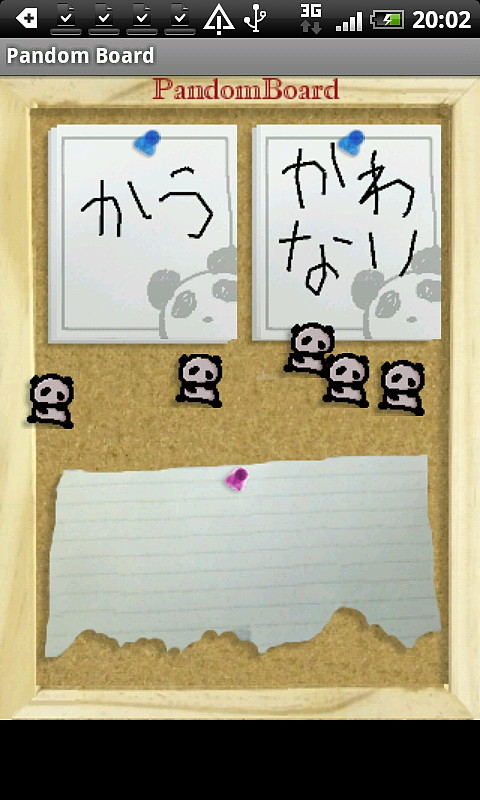 3G 20:02
Pandom Board
PandomBoard
かう
かわ
ない